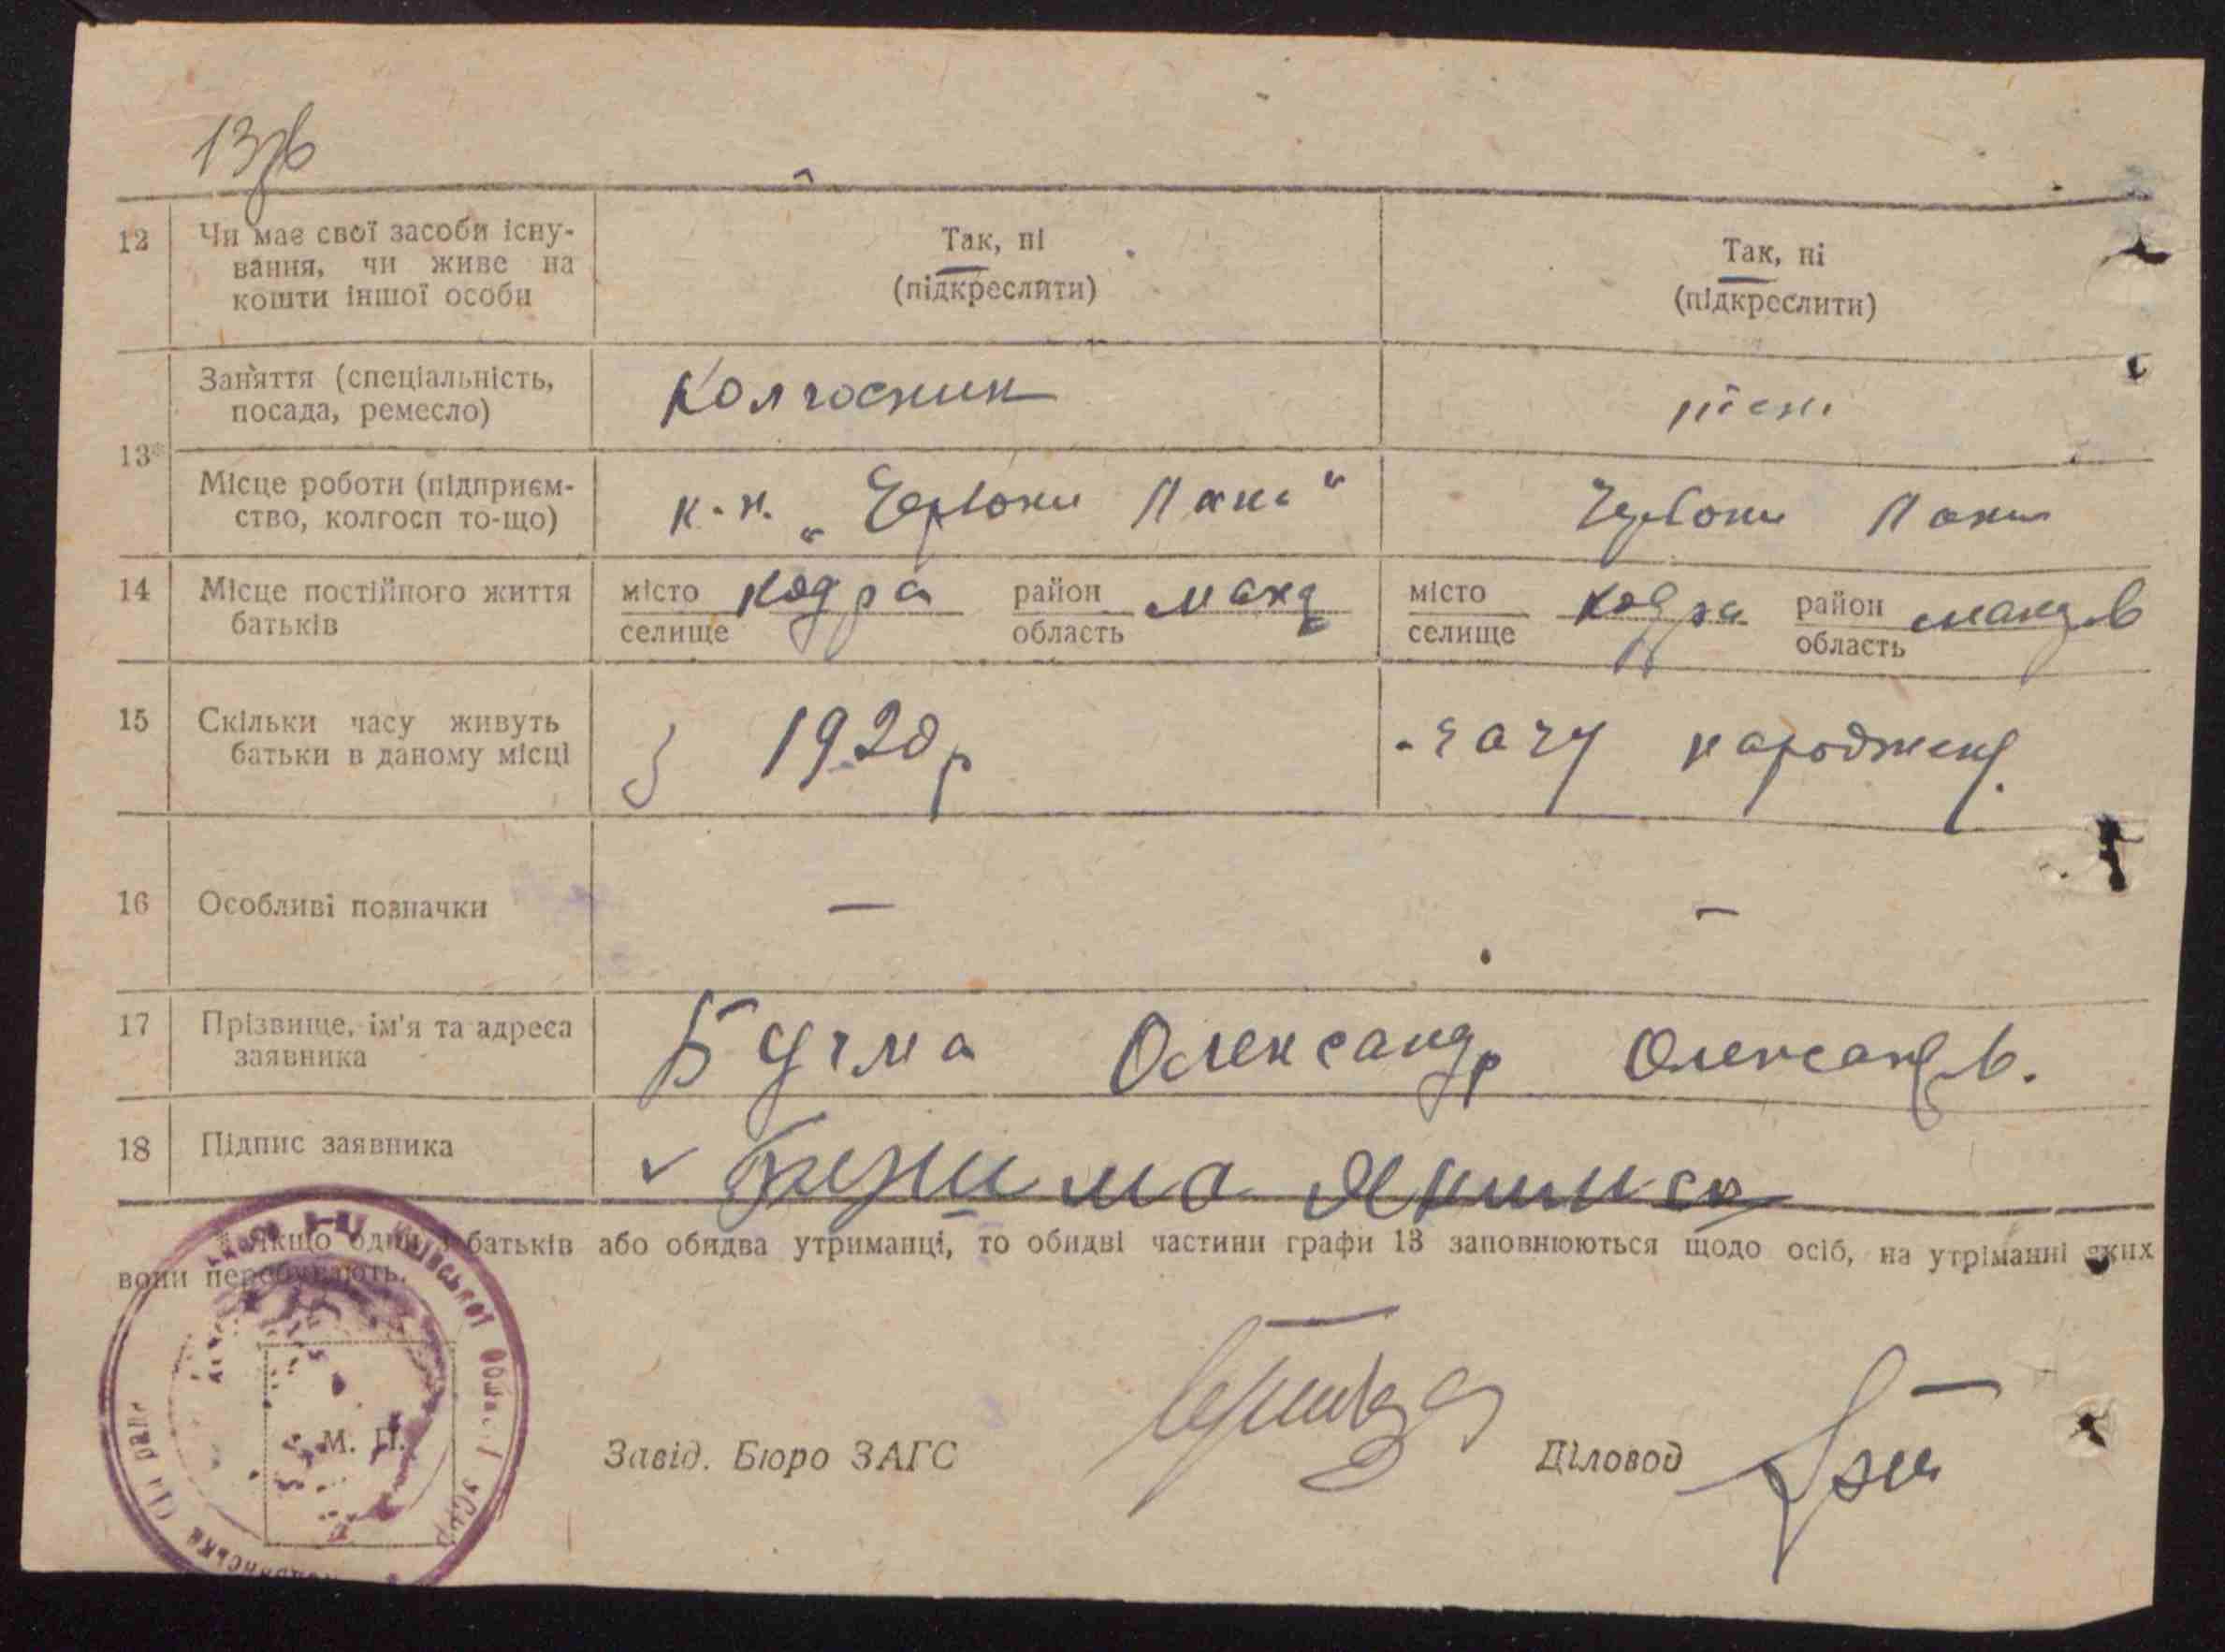 13зв
12 Чи має свої засоби існу-
вання, чи живе на
кошти іншої особи
Так, ні
(підкреслити)
Так, ні
(підкреслити)
13*
Заняття (спеціальність,
посада, ремесло)
Колгосник
Місце роботи (підприєм-
ство, колгосп то-що)
к.н. „Червони Лани“
Червони Лани
14 Місце постійного життя
батьків
місто
селище
кодра
район
область
макд
місто
селище
кодра
район
область
15 Скільки часу живуть
батьки в даному місці
З 1920р
народжен.
16 Особливі позначки
— —
17 Прізвище, ім'я та адреса
заявника
Бучма Олександр Олександ.
18 Підпис заявника
* Якщо один з батьків або обидва утриманці, то обидві частини графи 13 заповнюються щодо осіб, на утріманні яких
вони перебувають.
М. П.
Завід. Бюро ЗАГС
Діловод